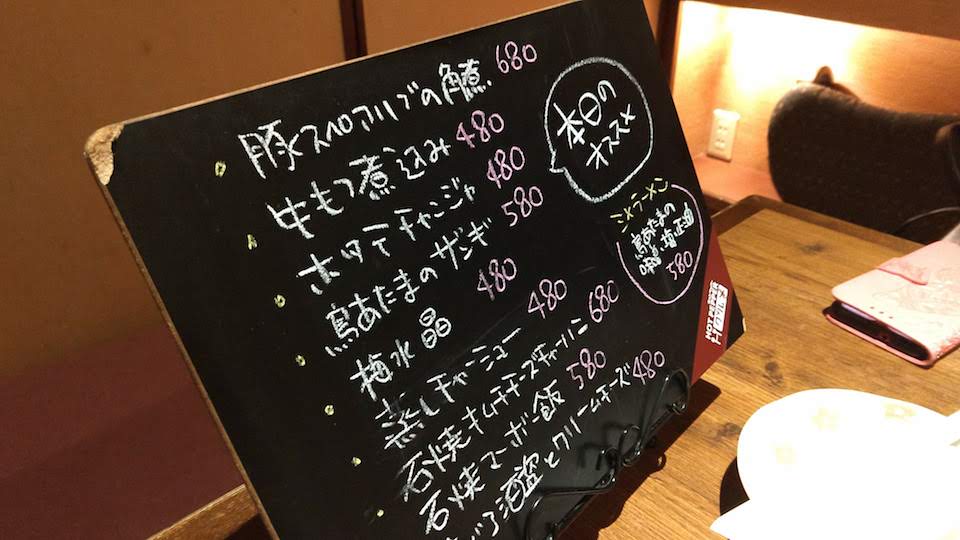 豚スペアリブの角煮 680
牛もつ煮込み 480
ホタテチャンジャ 480
鳥あたまのザンギ 580
梅水晶 480
蒸しチャーシュー 480
石焼キムチチーズチャーハン 680
石焼マーボー飯 580
酒盗とクリームチーズ 480
本日の
オススメ
〆ラーメン
鳥あたまの
580
HOT PEPPER